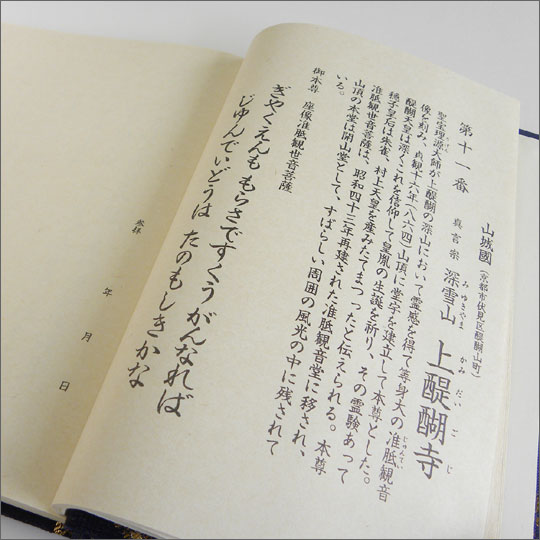 第十一番
山城國（京都市伏見区醍醐山町）
真言宗 深雪山 上醍醐寺
みゆきやま かみ だい ご じ
聖宝理源大師が上醍醐の深山において霊感を得て等身大の准胝観音
じゅんてい
像を刻み、貞観十六年（八六四）山頂に堂宇を建立して本尊とした。
醍醐天皇は深くこれを信仰して皇胤の生誕を祈り、その霊験あって
穏子皇后は朱雀、村上天皇を産みたてまつったと伝えられる。本尊
准胝観世音菩薩は、昭和四十三年再建された准胝観音堂に移され、
山頂の本堂は開山堂として、すばらしい周囲の風光の中に残されて
いる。
御本尊 座像准胝観世音菩薩
ぎやくえんも もらさですくうがんなれば
じゆんでいどうは たのもしきかな
年 月 日